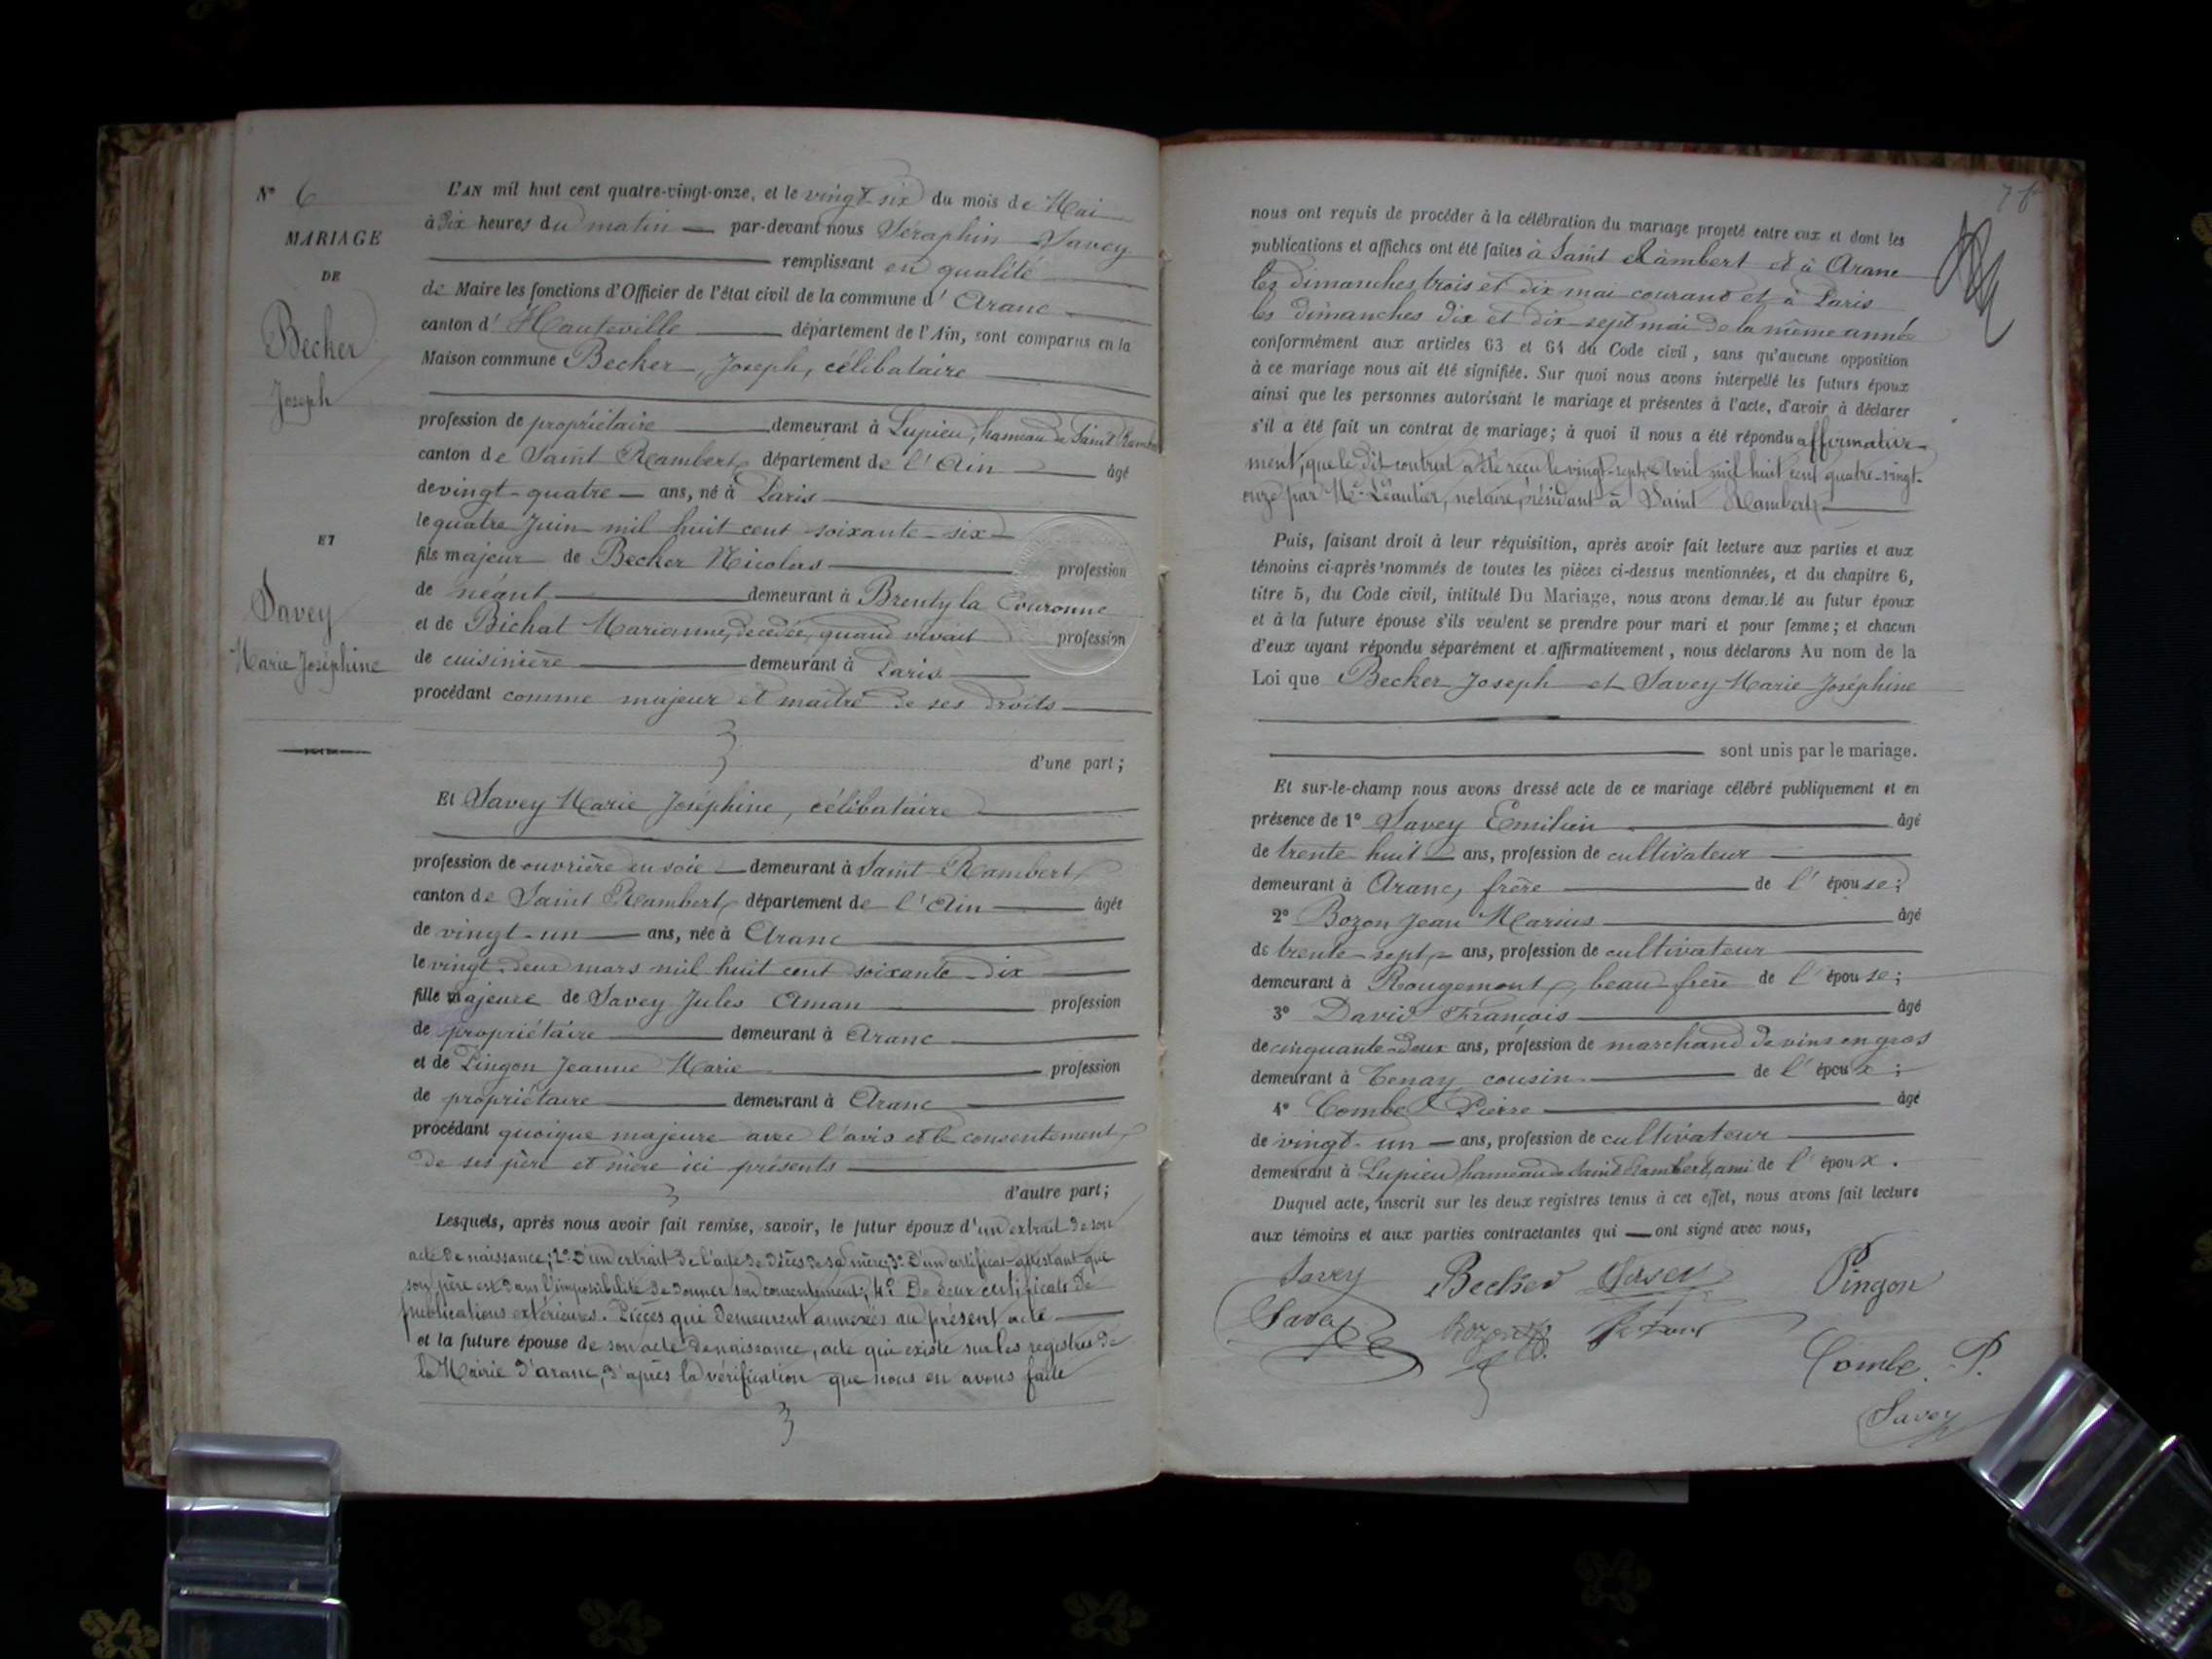 N° 6
MARIAGE
DE
Becker
Joseph
ET
Savey
Marie Joséphine
L'AN mil huit cent quatre-vingt-onze, et le vingt six du mois de Mai
à Dix heures du matin par-devant nous Séraphin Savey
remplissant en qualité
de Maire les fonctions d'Officier de l'état civil de la commune d'Aranc
canton d'Hauteville département de l'Ain, sont comparus en la
Maison commune Becker, Joseph, célibataire
profession de propriétaire demeurant à Lupieu, hameau de Saint Rambert
canton de Saint Rambert, département de l'Ain âgé
de vingt-quatre ans, né à Paris
le quatre Juin mil huit cent soixante-six
fils majeur de Becker Nicolas profession
de néant demeurant à Brenty la Couronne
et de Bichat Marianne, décédée, quand vivait profession
de cuisinière demeurant à Paris
procédant comme majeur et maître de ses droits
d'une part;
Et Savey Marie Joséphine, célibataire
profession de ouvrière en soie demeurant à Saint-Rambert
canton de Saint Rambert, département de l'Ain âgée
de vingt-un ans, née à Aranc
le vingt-deux mars mil huit cent soixante-dix
fille majeure de Savey Jules Aman profession
de propriétaire demeurant à Aranc
et de Pingon Jeanne Marie profession
de propriétaire demeurant à Aranc
procédant quoique majeure avec l'avis et le consentement
de ses père et mère ici présents
d'autre part;
Lesquels, après nous avoir fait remise, savoir, le futur époux d'un extrait de son
acte de naissance; 2° D'un extrait de l'acte de décès de sa mère; 3° D'un certificat attestant que
son père est dans l'impossibilité de donner son consentement; 4° De deux certificats de
publications extérieures. Pièces qui demeurent annexées au présent acte
et la future épouse de son acte de naissance, acte qui existe sur les registres de
la Mairie d'Aranc, d'après la vérification que nous en avons faite
nous ont requis de procéder à la célébration du mariage projeté entre eux et dont les
publications et affiches ont été faites à Saint Rambert et à Aranc
les dimanches trois et dix mai courant et à Paris
les dimanches dix et dix-sept mai de la même année
conformément aux articles 63 et 64 du Code civil, sans qu'aucune opposition
à ce mariage nous ait été signifiée. Sur quoi nous avons interpellé les futurs époux
ainsi que les personnes autorisant le mariage et présentes à l'acte, d'avoir à déclarer
s'il a été fait un contrat de mariage; à quoi il nous a été répondu affirmative-
ment, que le dit contrat a été reçu le vingt-sept Avril mil huit cent quatre-vingt-
onze par Me Léautier, notaire, résidant à Saint Rambert
Puis, faisant droit à leur réquisition, après avoir fait lecture aux parties et aux
témoins ci-après nommés de toutes les pièces ci-dessus mentionnées, et du chapitre 6,
titre 5, du Code civil, intitulé Du Mariage, nous avons demandé au futur époux
et à la future épouse s'ils veulent se prendre pour mari et pour femme; et chacun
d'eux ayant répondu séparément et affirmativement, nous déclarons Au nom de la
Loi que Becker Joseph et Savey Marie Joséphine
sont unis par le mariage.
Et sur-le-champ nous avons dressé acte de ce mariage célébré publiquement et en
présence de 1° Savey Emilien âgé
de trente huit ans, profession de cultivateur
demeurant à Aranc, frère de l'épouse;
2° Bozon Jean Marius âgé
de trente-sept ans, profession de cultivateur
demeurant à Rougemont, beau frère de l'épouse;
3° David François âgé
de cinquante-deux ans, profession de marchand de vins en gros
demeurant à Tenay cousin de l'époux;
4° Combe Pierre âgé
de vingt-un ans, profession de cultivateur
demeurant à Lupieu hameau de Saint Rambert, ami de l'époux.
Duquel acte, inscrit sur les deux registres tenus à cet effet, nous avons fait lecture
aux témoins et aux parties contractantes qui ont signé avec nous,
Savey Becker Savey Pingon
Savey Bozon
Combe. P.
Savey